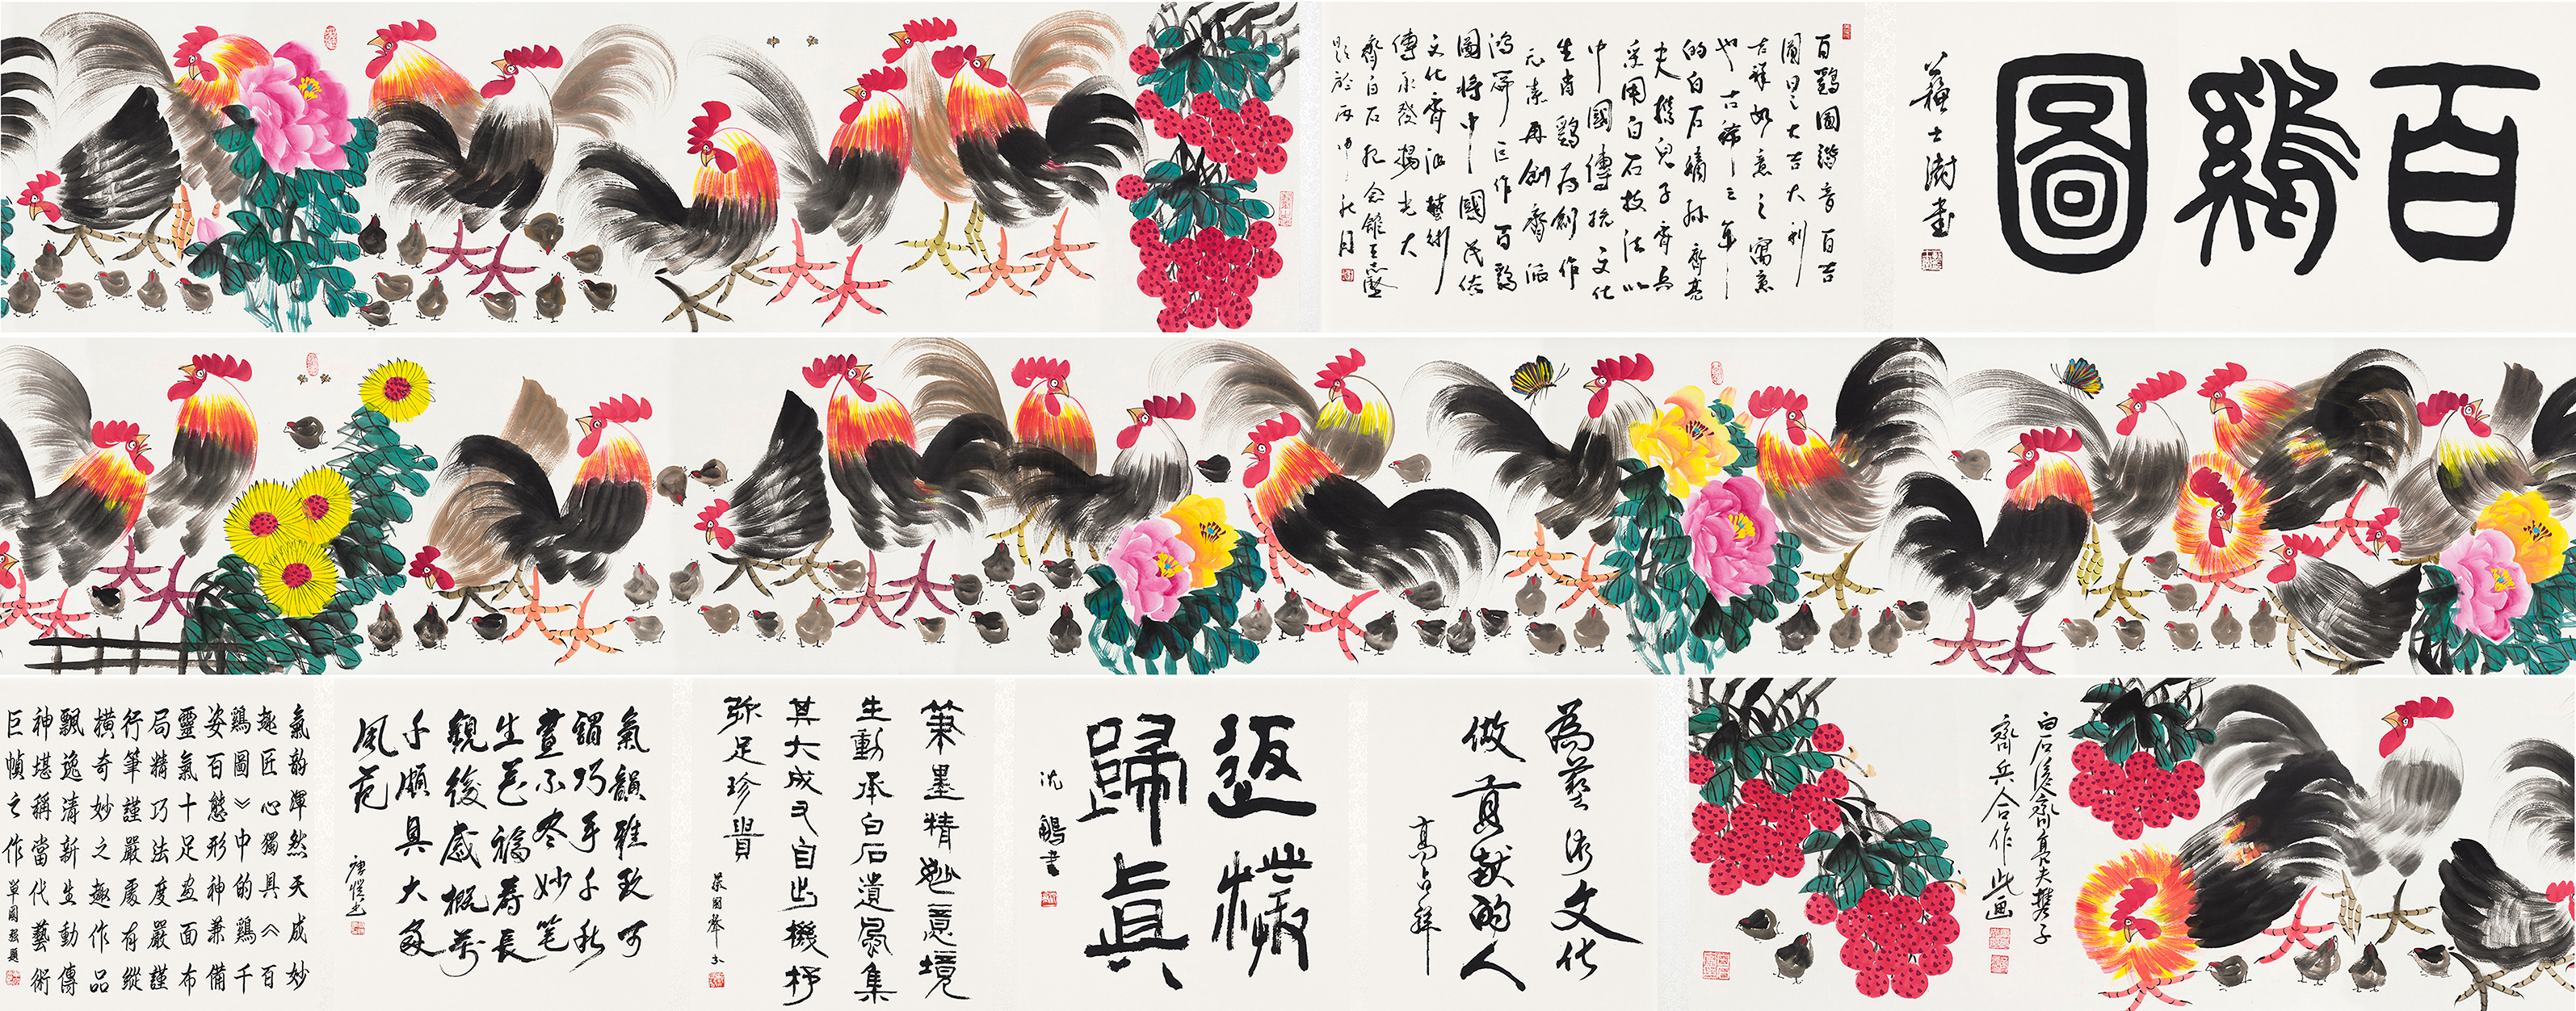 百鷄圖
蘇士澍書
百鷄圖諧音百吉
大吉大利
吉祥如意之寓意
也古稀之年
的白石嫡孫齊
夫携兒子齊兵
采用白石技法以
中國傳統文化
生肖鷄為創作
元素再創齊派
鴻篇巨作百鷄
圖將中國民俗
文化齊派藝術
傳承發揚光大
齊白石紀念館王志
題於丙申秋月
白石後裔齊真夫携子
齊兵合作此画
為藝术文化
做貢献的人
高占祥
返樸
歸真
沈鵬書
筆墨精妙意境
生動承白石遺風集
其大成又自出機杼
弥足珍貴
氣韻雅致可
謂巧手千秋
畫不尽妙笔
生花福壽長
觀後感概萬
千頗具大家
風范
氣韵渾然天成妙
趣匠心獨具《百
鷄圖》中的鷄千
姿百態形神兼備
靈氣十足画面布
局精巧法度嚴謹
行筆謹嚴處有縱
橫奇妙之趣作品
飄逸清新生動傳
神堪稱當代藝術
巨幀之作
單國強題